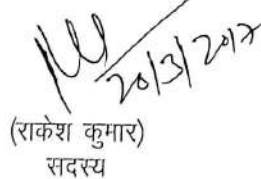 20/3/2017
(राकेश कुमार)
सदस्य